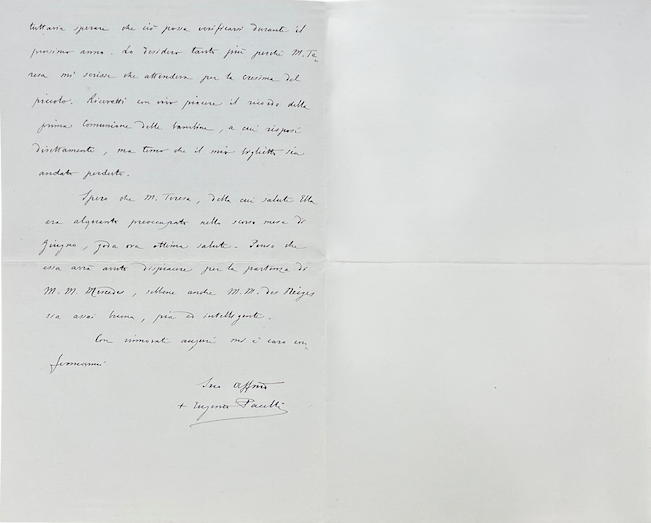 tuttavia sperare che ciò possa verificarsi durante il
prossimo anno. Lo desidero tanto più perchè M. Te-
resa mi scrisse che attendeva per la cresima del
piccolo. Ricevetti con vivo piacere il ricordo della
prima Comunione delle bambine, a cui risposi
direttamente, ma temo che il mio biglietto sia
andato perduto.
Spero che M. Teresa, della cui salute Ella
era alquanto preoccupato nello scorso mese di
Giugno, goda ora ottima salute. Penso che
essa avrà avuto dispiacere per la partenza di
M. M. Mercedes, sebbene anche M. M. des Neiges
sia assai buona, pia ed intelligente.
Con rinnovati auguri mi è caro con-
fermarmi
Suo affmo
+ Eugenio Pacelli